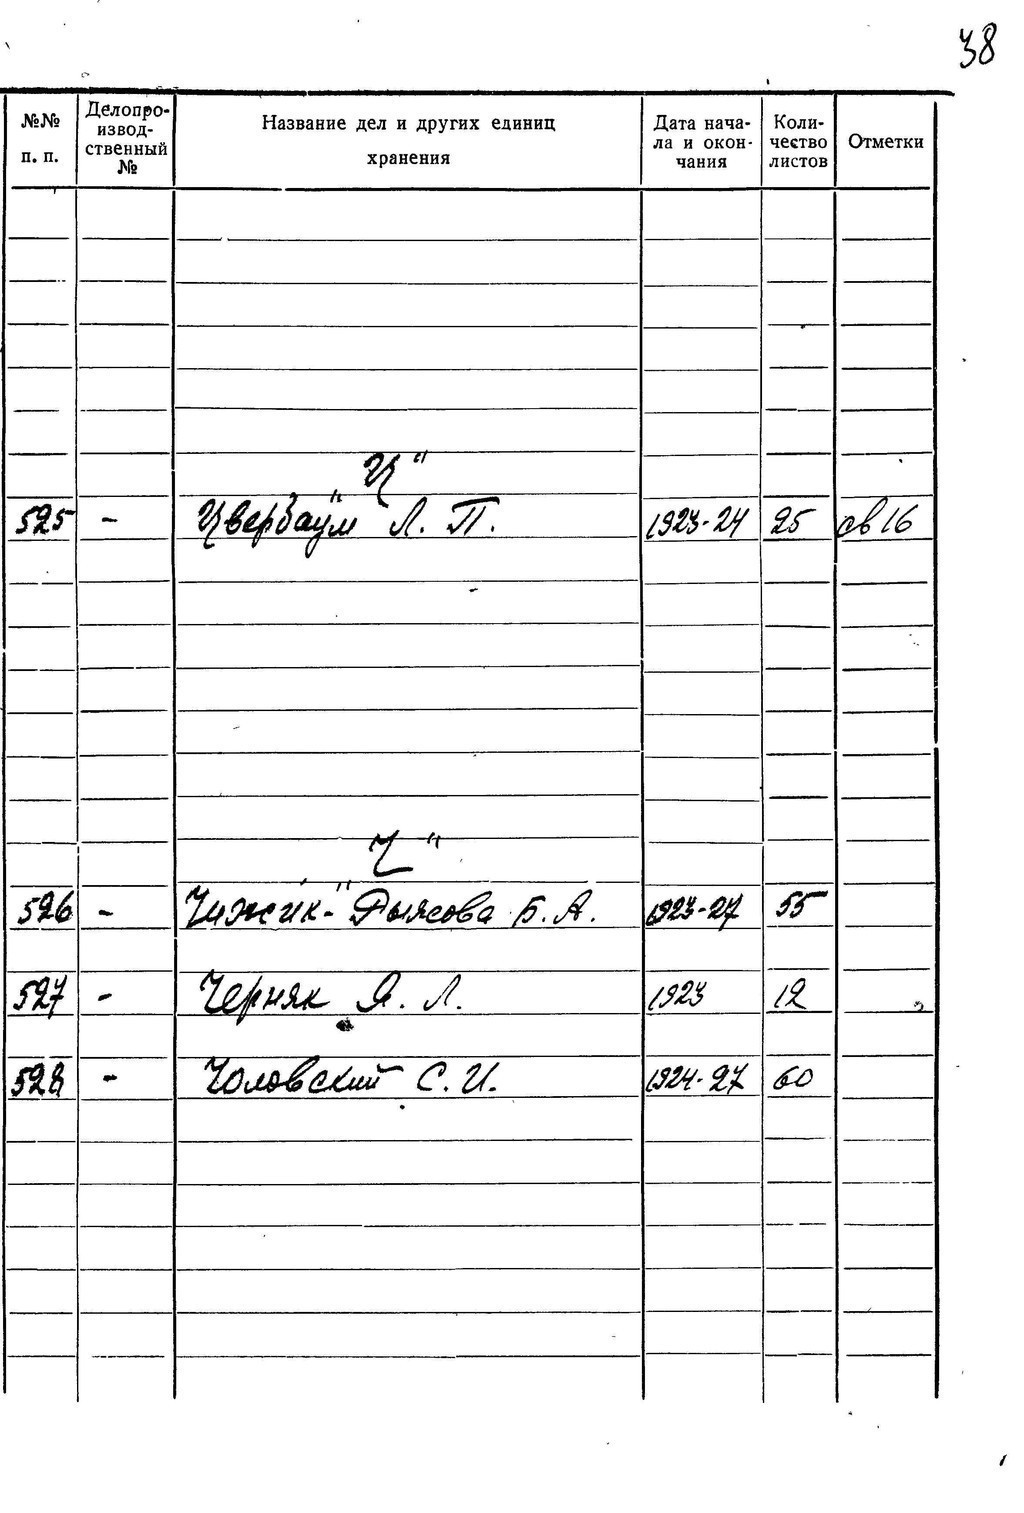 38
№№ п. п. Делопро-извод-ственный № Название дел и других единиц хранения Дата нача-ла и окон-чания Коли-чество листов Отметки
„Ц“
525 - Цвербаум Л. П. 1923-24 25 св 16
„Ч“
526 - Чижик- Б. А. 1923-27 55
527 - Черняк Я. Л. 1923 12
528 - Чоловский С. И. 1924-27 60